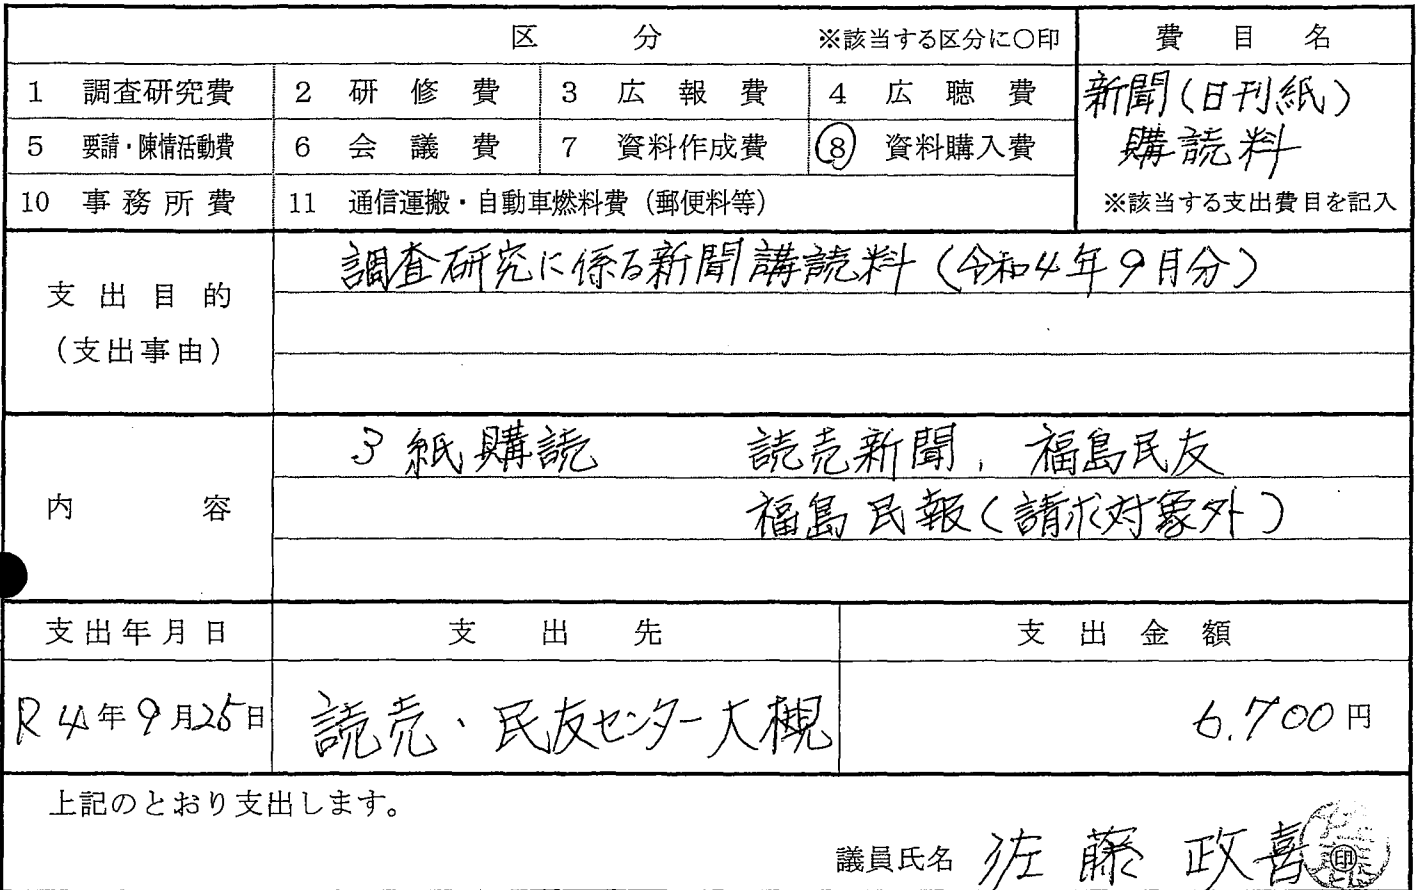 区 分 ※該当する区分に○印 費 目 名
1 調査研究費 2 研 修 費 3 広 報 費 4 広 聴 費 新聞(日刊紙)
5 要請・陳情活動費 6 会 議 費 7 資料作成費 ⑧ 資料購入費 購読料
10 事 務 所 費 11 通信運搬・自動車燃料費(郵便料等) ※該当する支出費目を記入
支 出 目 的
(支出事由)
調査研究に係る新聞講読料(令和4年9月分)
内 容
3紙購読 読売新聞, 福島民友
福島民報(請求対象外)
支出年月日 支 出 先 支 出 金 額
R4年9月25日 読売・民友センター大槻 6.700円
上記のとおり支出します。
議員氏名 佐藤 政喜 印